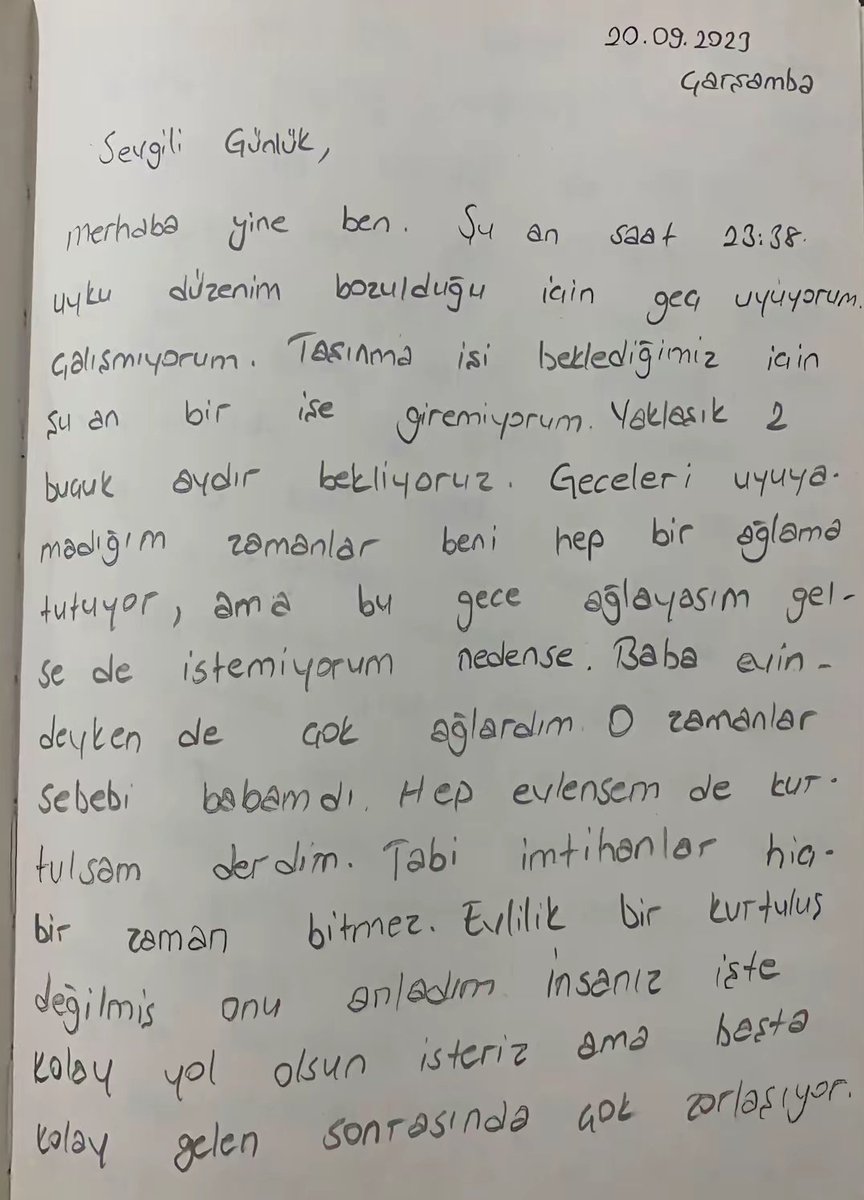 20.09.2023
Çarşamba
Sevgili Günlük,
merhaba yine ben. Şu an saat 23:38.
uyku düzenim bozulduğu için geç uyuyorum.
çalışmıyorum. Taşınma işi beklediğimiz için
şu an bir işe giremiyorum. Yaklaşık 2
buçuk aydır bekliyoruz. Geceleri uyuya-
madığım zamanlar beni hep bir ağlama
tutuyor, ama bu gece ağlayasım gel-
se de istemiyorum nedense. Baba evin-
deyken de çok ağlardım. O zamanlar
sebebi babamdı. Hep evlensem de kur-
tulsam derdim. Tabi imtihanlar hiç-
bir zaman bitmez. Evlilik bir kurtuluş
değilmiş onu anladım. İnsanız işte
kolay yol olsun isteriz ama başta
kolay gelen sonrasında çok zorlaşıyor.